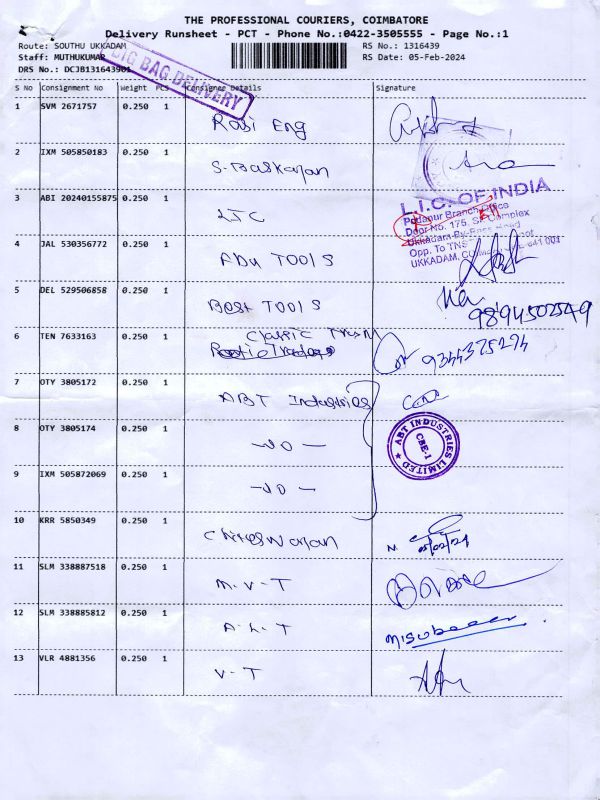 THE PROFESSIONAL COURIERS, COIMBATORE
Delivery Runsheet - PCT - Phone No.:0422-3505555 - Page No.:1
Route: SOUTHU UKKADAM RS No.: 1316439
Staff: MUTHUKUMAR RS Date: 05-Feb-2024
DRS No.: DCJB131643901
BIG BAG DELIVERY
S No Consignment No Weight PCS Consignee Details Signature
1 SVM 2671757 0.250 1 Rasi Eng
2 IXM 505850183 0.250 1 S. Baskaran
3 ABI 20240155875 0.250 1 LIC
L.I.C. OF INDIA
Podanur Branch Office
Door No. 175, Complex
Ukkadam By-Pass Road
Opp. To TNSTC
UKKADAM, 641 001
4 JAL 530356772 0.250 1 ABU TOOLS
5 DEL 529506858 0.250 1 Best TOOLS 9894502549
6 TEN 7633163 0.250 1 Classic 9344375274
7 OTY 3805172 0.250 1 ABT Industries
8 OTY 3805174 0.250 1 — DO —
ABT INDUSTRIES LIMITED
CBE-1
9 IXM 505872069 0.250 1 — DO —
10 KRR 5850349 0.250 1 05/02/24
11 SLM 338887518 0.250 1 M.V.T
12 SLM 338885812 0.250 1 A.L.T
13 VLR 4881356 0.250 1 V.T